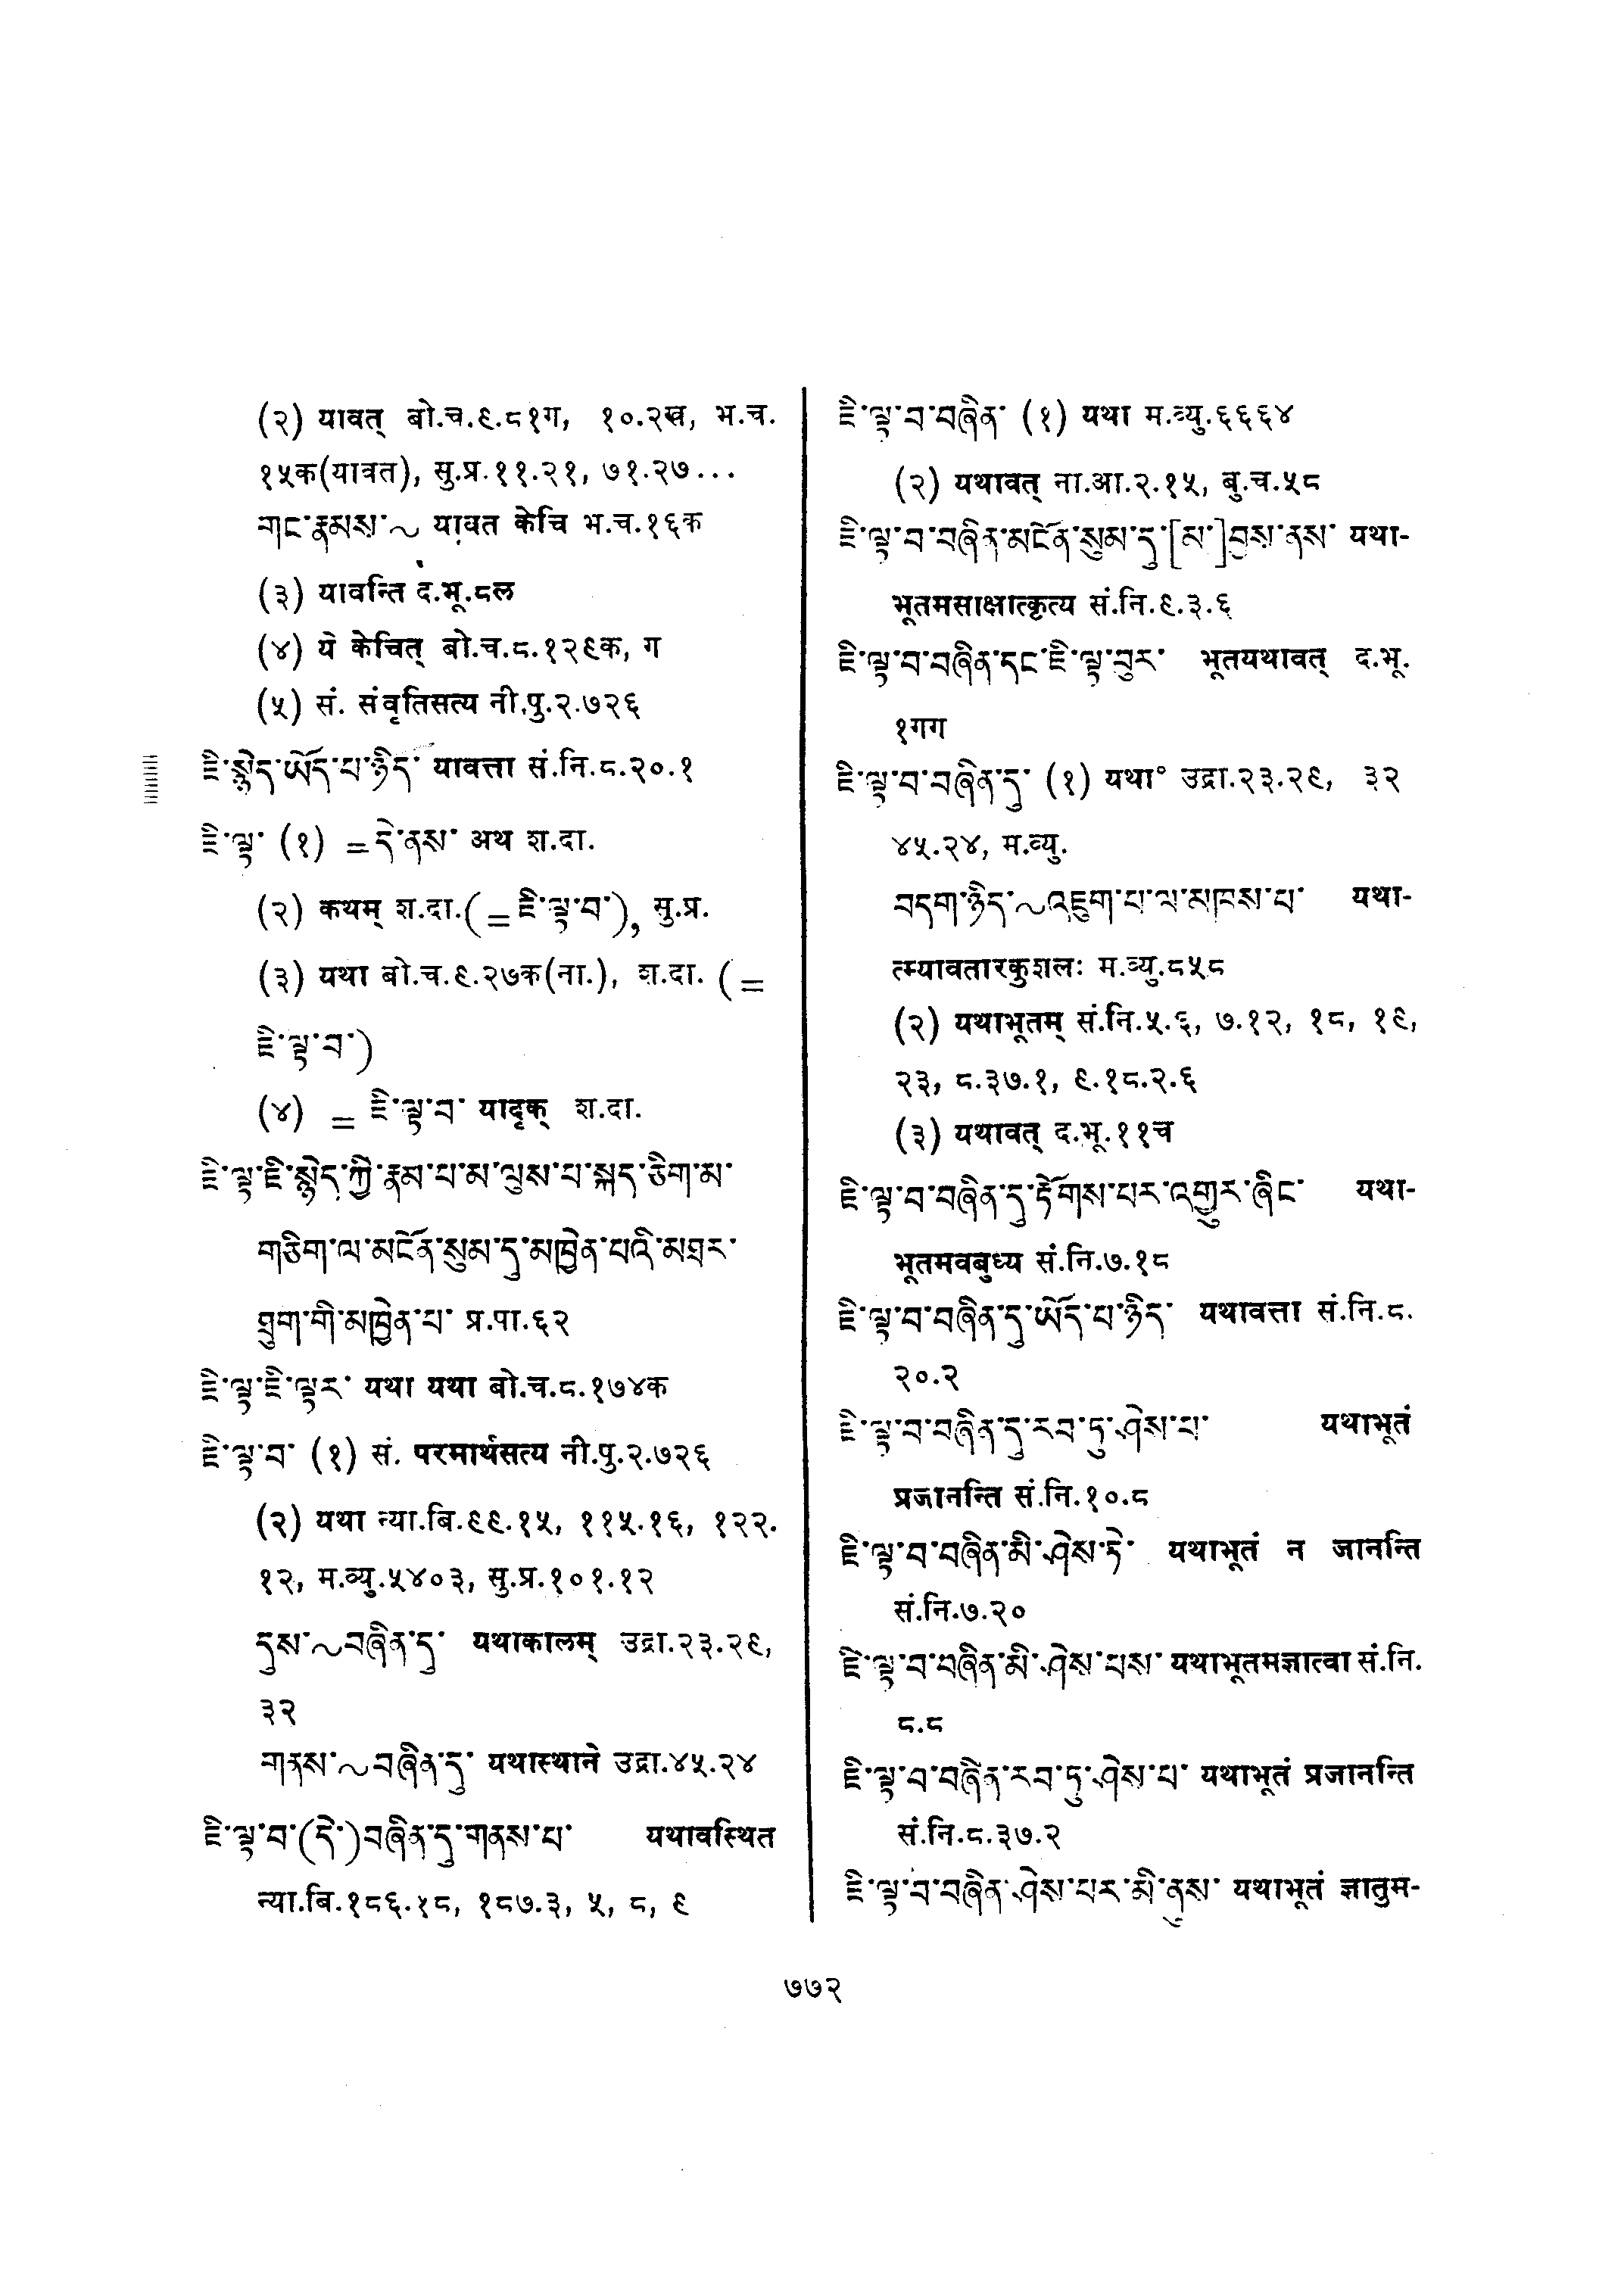 (२) यावत् बो.च.९.८१ग, १०.२ख, भ.च.
१५क(यावत), सु.प्र.११.२१, ७१.२७...
གང་རྣམས་~ यावत केचि भ.च.१६क
(३) यावन्ति द.भू.८ल
(४) ये केचित् बो.च.८.१२९क, ग
(५) सं. संवृतिसत्य नी.पु.२.७२६
ཇི་སྙེད་ཡོད་པ་ཉིད་ यावत्ता सं.नि.८.२०.१
ཇི་ལྟ་ (१) =དེ་ནས་ अथ श.दा.
(२) कथम् श.दा.(=ཇི་ལྟ་བ་), सु.प्र.
(३) यथा बो.च.९.२७क(ना.), श.दा. (=
ཇི་ལྟ་བ་)
(४) = ཇི་ལྟ་བ་ यादृक् श.दा.
ཇི་ལྟ་ཇི་སྙེད་ཀྱི་རྣམ་པ་མ་ལུས་པ་སྐད་ཅིག་མ་
གཅིག་ལ་མངོན་སུམ་དུ་མཁྱེན་པའི་མཐར་
ཐུག་གི་མཁྱེན་པ་ प्र.पा.६२
ཇི་ལྟ་ཇི་ལྟར་ यथा यथा बो.च.८.१७४क
ཇི་ལྟ་བ་ (१) सं. परमार्थसत्य नी.पु.२.७२६
(२) यथा न्या.बि.९९.१५, ११५.१६, १२२.
१२, म.व्यु.५४०३, सु.प्र.१०१.१२
དུས་~བཞིན་དུ་ यथाकालम् उद्रा.२३.२९,
३२
གནས་~བཞིན་དུ་ यथास्थाने उद्रा.४५.२४
ཇི་ལྟ་བ་(དེ་)བཞིན་དུ་གནས་པ་ यथावस्थित
न्या.बि.१८६.१८, १८७.३, ५, ८, ९
ཇི་ལྟ་བ་བཞིན་ (१) यथा म.व्यु.६६६४
(२) यथावत् ना.आ.२.१५, बु.च.५८
ཇི་ལྟ་བ་བཞིན་མངོན་སུམ་དུ་[མ་]བྱས་ནས་ यथा-
भूतमसाक्षात्कृत्य सं.नि.९.३.६
ཇི་ལྟ་བ་བཞིན་དང་ཇི་ལྟ་བུར་ भूतयथावत् द.भू.
१गग
ཇི་ལྟ་བ་བཞིན་དུ་ (१) यथा° उद्रा.२३.२९, ३२
४५.२४, म.व्यु.
བདག་ཉིད་~འཇུག་པ་ལ་མཁས་པ་ यथा-
त्म्यावतारकुशलः म.व्यु.८५८
(२) यथाभूतम् सं.नि.५.६, ७.१२, १८, १९,
२३, ८.३७.१, ९.१८.२.६
(३) यथावत् द.भू.११च
ཇི་ལྟ་བ་བཞིན་དུ་རྟོགས་པར་འགྱུར་ཞིང་ यथा-
भूतमवबुध्य सं.नि.७.१८
ཇི་ལྟ་བ་བཞིན་དུ་ཡོད་པ་ཉིད་ यथावत्ता सं.नि.८.
२०.२
ཇི་ལྟ་བ་བཞིན་དུ་རབ་ཏུ་ཤེས་པ་ यथाभूतं
प्रजानन्ति सं.नि.१०.८
ཇི་ལྟ་བ་བཞིན་མི་ཤེས་ཏེ་ यथाभूतं न जानन्ति
सं.नि.७.२०
ཇི་ལྟ་བ་བཞིན་མི་ཤེས་པས་ यथाभूतमज्ञात्वा सं.नि.
८.८
ཇི་ལྟ་བ་བཞིན་རབ་ཏུ་ཤེས་པ་ यथाभूतं प्रजानन्ति
सं.नि.८.३७.२
ཇི་ལྟ་བ་བཞིན་ཤེས་པར་མི་ནུས་ यथाभूतं ज्ञातुम-
७७२